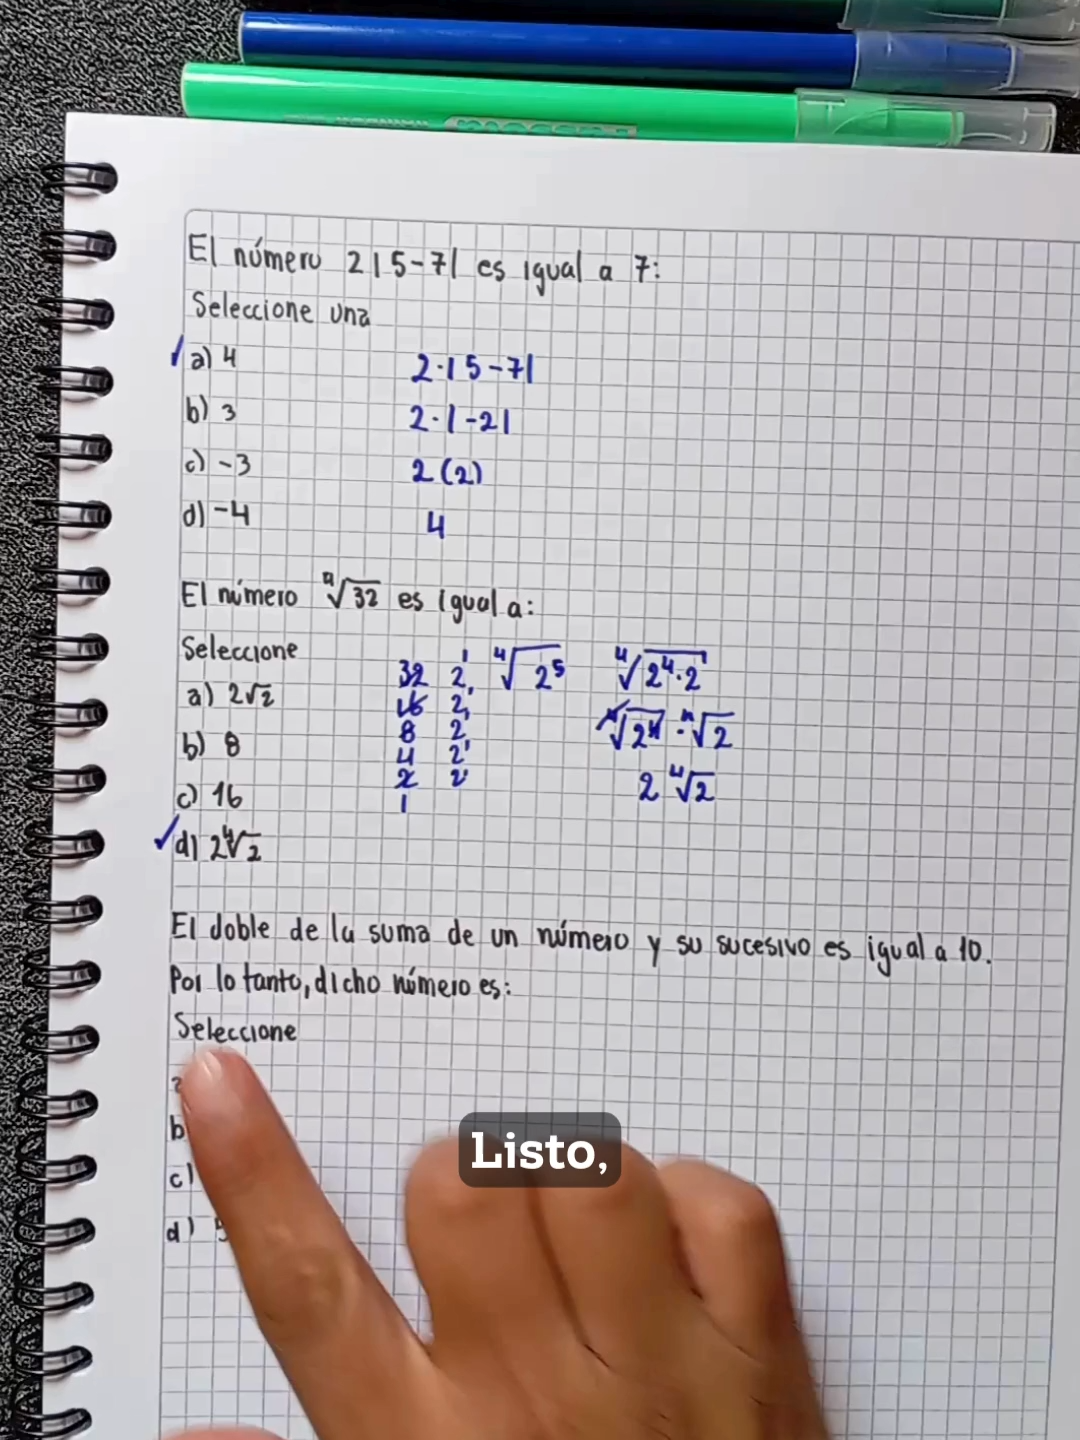 El número 2|5-7| es igual a 7:
Seleccione una
a) 4
b) 3
c) -3
d) -4
2·|5-7|
2·|-2|
2(2)
4
El número ∜32 es igual a:
Seleccione
a) 2√2
b) 8
c) 16
d) 2∜2
32 2
16 2
8 2
4 2
2 2
1
∜2⁵
∜2⁴·2
∜2⁴ · ∜2
2∜2
El doble de la suma de un número y su sucesivo es igual a 10.
Por lo tanto, dicho número es:
Seleccione
b
c)
d)
Listo,